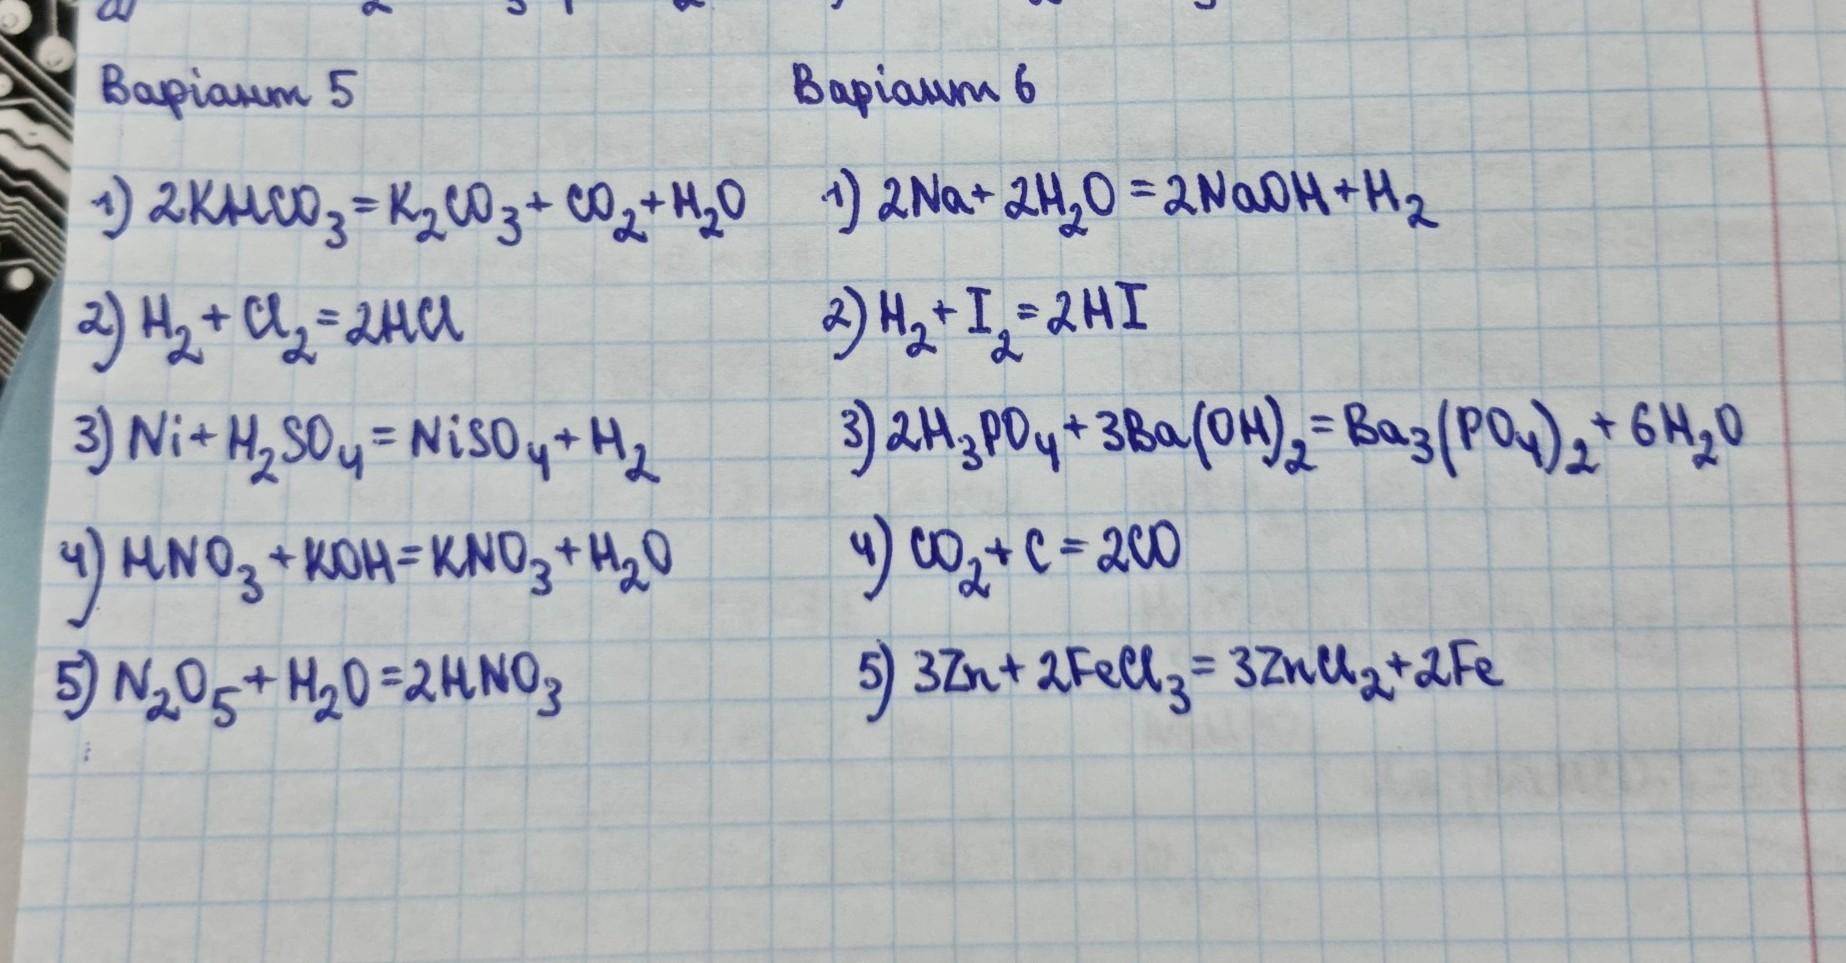 Варіант 5
1) 2KHCO₃=K₂CO₃+CO₂+H₂O
2) H₂+Cl₂=2HCl
3) Ni+H₂SO₄=NiSO₄+H₂
4) HNO₃+KOH=KNO₃+H₂O
5) N₂O₅+H₂O=2HNO₃
Варіант 6
1) 2Na+2H₂O=2NaOH+H₂
2) H₂+I₂=2HI
3) 2H₃PO₄+3Ba(OH)₂=Ba₃(PO₄)₂+6H₂O
4) CO₂+C=2CO
5) 3Zn+2FeCl₃=3ZnCl₂+2Fe